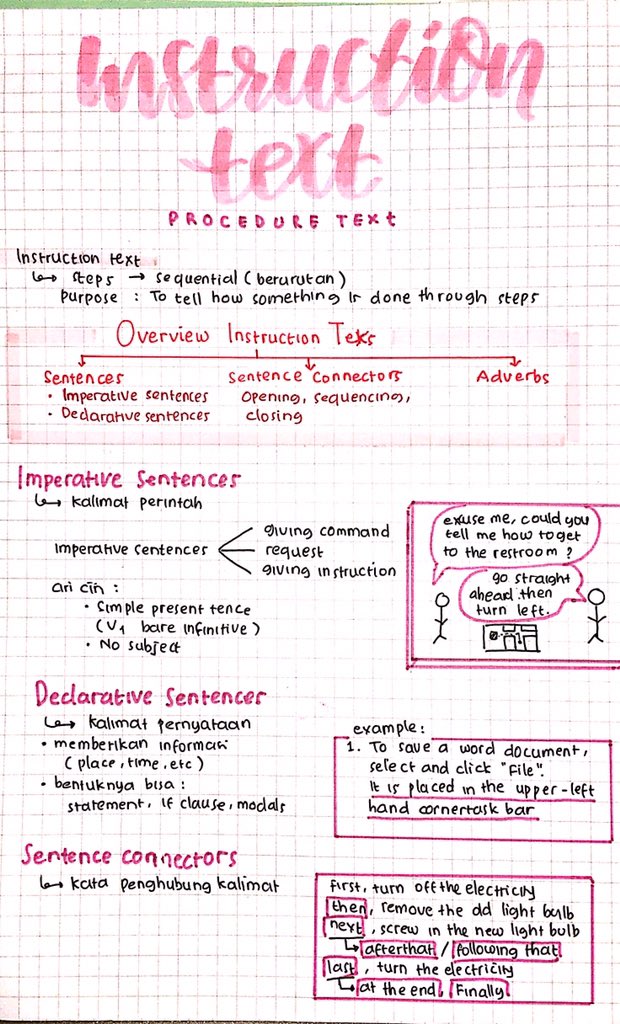 Instruction
text
PROCEDURE TEXT
Instruction text
↳ steps → sequential (berurutan)
purpose : To tell how something is done through steps
Overview Instruction Teks
Sentences
• Imperative sentences
• Declarative sentences
Sentence Connectors
Opening, sequencing,
closing
Adverbs
Imperative Sentences
↳ kalimat perintah
Imperative sentences
giving command
request
giving instruction
ciri :
• Simple present tence
(V1 bare infinitive)
• No subject
exuse me, could you
tell me how to get
to the restroom ?
go straight
ahead then
turn left.
Declarative Sentences
↳ kalimat pernyataan
• memberikan informasi
(place, time, etc)
• bentuknya bisa :
statement, if clause, modals
example :
1. To save a word document,
select and click "File".
It is placed in the upper-left
hand cornertask bar
Sentence connectors
↳ kata penghubung kalimat
First, turn off the electricity
then, remove the old light bulb
next, screw in the new light bulb
↳ afterthat / following that
last, turn the electricity
↳ at the end, Finally